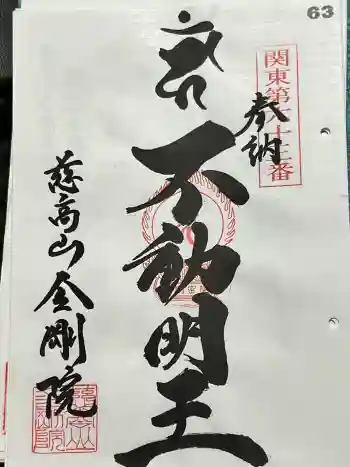 63
関東第六十三番
奉納
不動明王
慈高山 金剛院